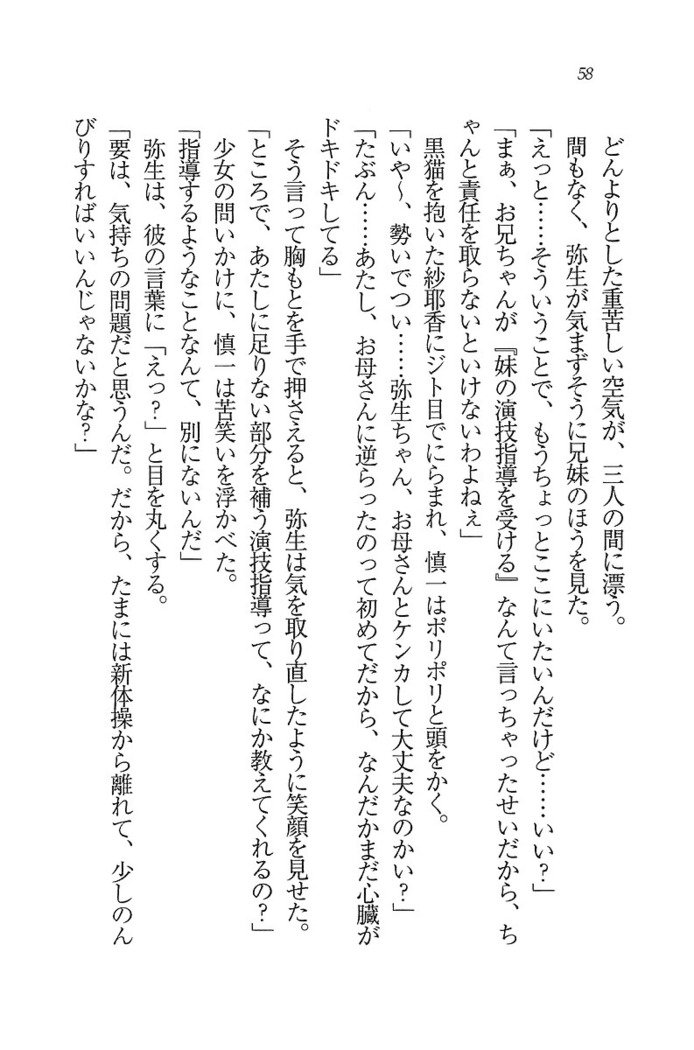 58
どんよりとした重苦しい空気が、三人の間に漂う。
間もなく、弥生が気まずそうに兄妹のほうを見た。
「えっと……そういうことで、もうちょっとここにいたいんだけど……いい?」
「まぁ、お兄ちゃんが『妹の演技指導を受ける』なんて言っちゃったせいだから、ち
ゃんと責任を取らないといけないわよねぇ」
黒猫を抱いた紗耶香にジト目でにらまれ、慎一はポリポリと頭をかく。
「いや〜、勢いでつい……弥生ちゃん、お母さんとケンカして大丈夫なのかい?」
「たぶん……あたし、お母さんに逆らったのって初めてだから、なんだかまだ心臓が
ドキドキしてる」
そう言って胸もとを手で押さえると、弥生は気を取り直したように笑顔を見せた。
「ところで、あたしに足りない部分を補う演技指導って、なにか教えてくれるの?」
少女の問いかけに、慎一は苦笑いを浮かべた。
「指導するようなことなんて、別にないんだ」
弥生は、彼の言葉に「えっ?」と目を丸くする。
「要は、気持ちの問題だと思うんだ。だから、たまには新体操から離れて、少しのん
びりすればいいんじゃないかな?」